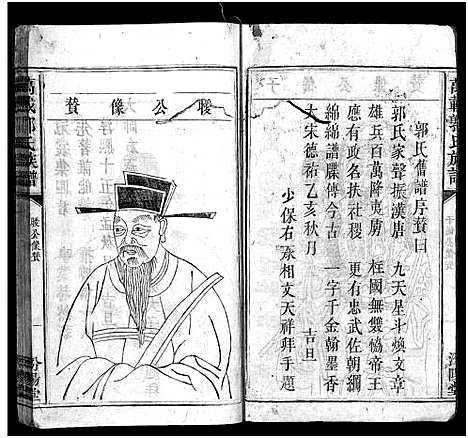 郭氏舊譜序贊曰
郭氏家聲振漢唐　九天星斗煥文章
雄兵百萬降夷虜　柱國無雙恊帝王
應有政名扶社稷　更有忠武佐朝綱
綿綿譜牒傳今古　一字千金翰墨香
大宋德祐乙亥秋月　吉旦
少保右丞相文天祥拜手題
萬載郭氏族譜
汾陽堂
曖公像贊
萬載郭氏族譜
曖公像贊
汾陽堂